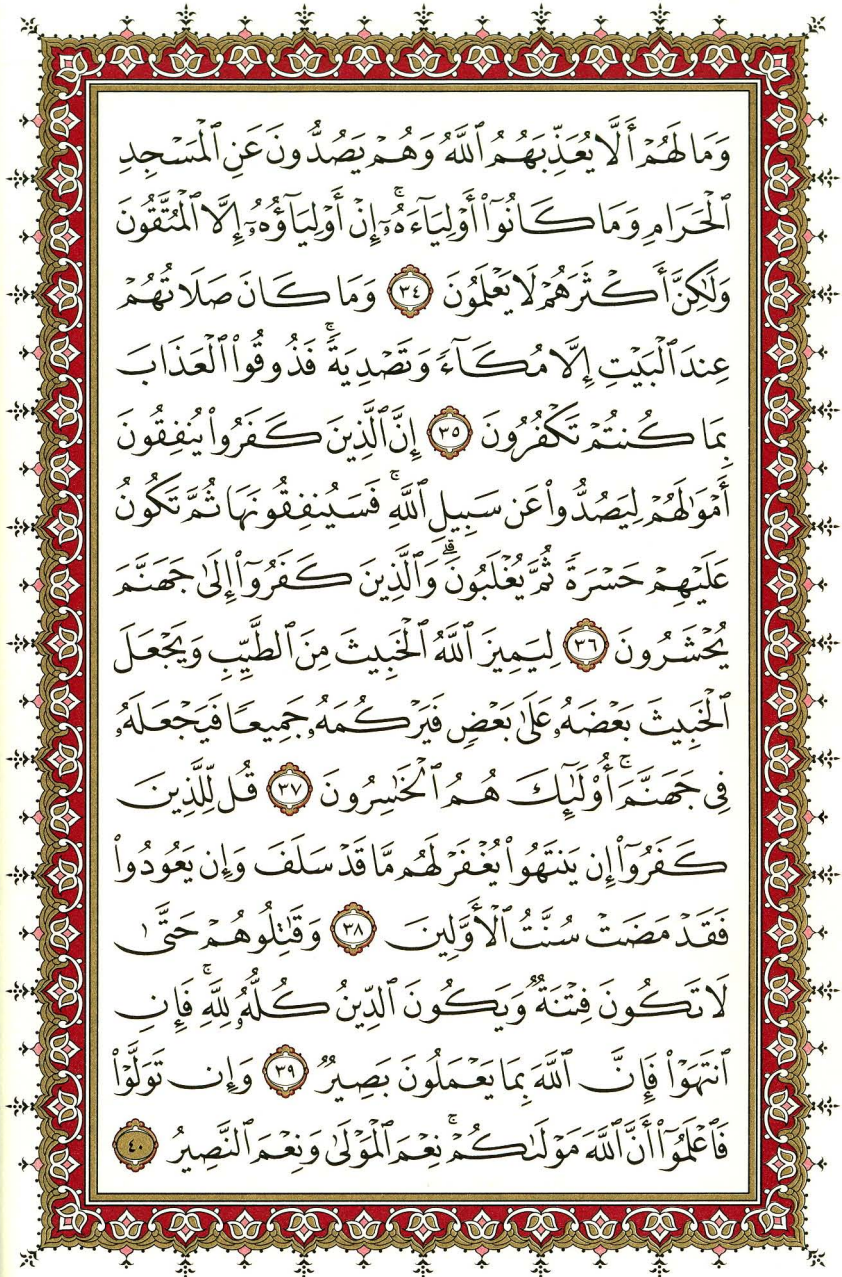 وَمَا لَهُمۡ أَلَّا يُعَذِّبَهُمُ ٱللَّهُ وَهُمۡ يَصُدُّونَ عَنِ ٱلۡمَسۡجِدِ
ٱلۡحَرَامِ وَمَا كَانُوٓاْ أَوۡلِيَآءَهُۥٓۚ إِنۡ أَوۡلِيَآؤُهُۥٓ إِلَّا ٱلۡمُتَّقُونَ
وَلَٰكِنَّ أَكۡثَرَهُمۡ لَا يَعۡلَمُونَ ٣٤ وَمَا كَانَ صَلَاتُهُمۡ
عِندَ ٱلۡبَيۡتِ إِلَّا مُكَآءٗ وَتَصۡدِيَةٗۚ فَذُوقُواْ ٱلۡعَذَابَ
بِمَا كُنتُمۡ تَكۡفُرُونَ ٣٥ إِنَّ ٱلَّذِينَ كَفَرُواْ يُنفِقُونَ
أَمۡوَٰلَهُمۡ لِيَصُدُّواْ عَن سَبِيلِ ٱللَّهِۚ فَسَيُنفِقُونَهَا ثُمَّ تَكُونُ
عَلَيۡهِمۡ حَسۡرَةٗ ثُمَّ يُغۡلَبُونَۗ وَٱلَّذِينَ كَفَرُوٓاْ إِلَىٰ جَهَنَّمَ
يُحۡشَرُونَ ٣٦ لِيَمِيزَ ٱللَّهُ ٱلۡخَبِيثَ مِنَ ٱلطَّيِّبِ وَيَجۡعَلَ
ٱلۡخَبِيثَ بَعۡضَهُۥ عَلَىٰ بَعۡضٖ فَيَرۡكُمَهُۥ جَمِيعٗا فَيَجۡعَلَهُۥ
فِي جَهَنَّمَۚ أُوْلَٰٓئِكَ هُمُ ٱلۡخَٰسِرُونَ ٣٧ قُل لِّلَّذِينَ
كَفَرُوٓاْ إِن يَنتَهُواْ يُغۡفَرۡ لَهُم مَّا قَدۡ سَلَفَ وَإِن يَعُودُواْ
فَقَدۡ مَضَتۡ سُنَّتُ ٱلۡأَوَّلِينَ ٣٨ وَقَٰتِلُوهُمۡ حَتَّىٰ
لَا تَكُونَ فِتۡنَةٞ وَيَكُونَ ٱلدِّينُ كُلُّهُۥ لِلَّهِۚ فَإِنِ
ٱنتَهَوۡاْ فَإِنَّ ٱللَّهَ بِمَا يَعۡمَلُونَ بَصِيرٞ ٣٩ وَإِن تَوَلَّوۡاْ
فَٱعۡلَمُوٓاْ أَنَّ ٱللَّهَ مَوۡلَىٰكُمۡۚ نِعۡمَ ٱلۡمَوۡلَىٰ وَنِعۡمَ ٱلنَّصِيرُ ٤٠